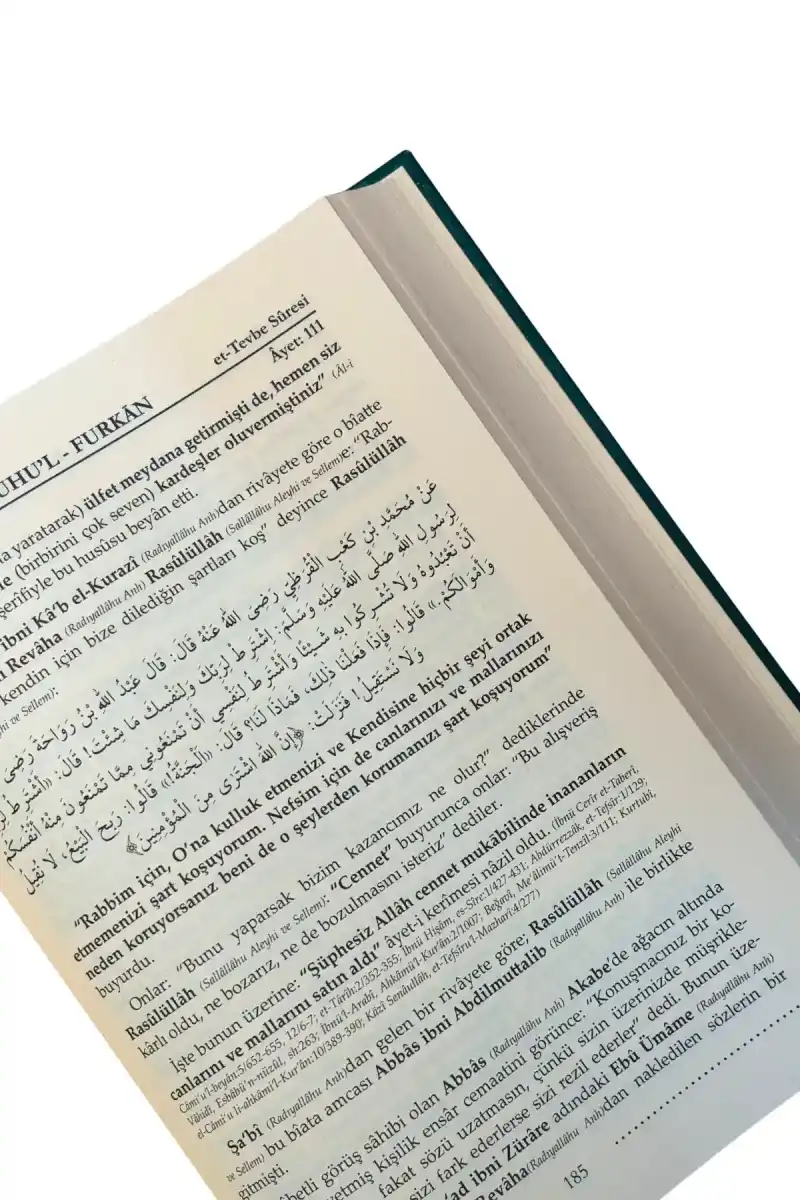 UHU'L - FURKĀN
et-Tevbe Sûresi
Âyet: 111
yaratarak) ülfet meydana getirmişti de, hemen siz
(birbirini çok seven) kardeşler oluvermiştiniz" (Âl-i
şerifiyle bu husûsu beyân etti.
ibni Kâ'b el-Kurazî (Radıyallâhu Anh)dan rivâyete göre o bîatte
Revâha (Radıyallâhu Anh) Rasûlüllâh (Sallâllâhu Aleyhi ve Sellem)e: "Rab-
kendin için bize dilediğin şartları koş" deyince Rasûlüllâh
ve Sellem):
عَنْ مُحَمَّدِ بْنِ كَعْبٍ الْقُرَظِيِّ رَضِيَ اللّٰهُ عَنْهُ قَالَ: قَالَ عَبْدُ اللّٰهِ بْنُ رَوَاحَةَ رَضِيَ
لِرَسُولِ اللّٰهِ صَلَّى اللّٰهُ عَلَيْهِ وَسَلَّمَ: اِشْتَرِطْ لِرَبِّكَ وَلِنَفْسِكَ مَا شِئْتَ! قَالَ: «أَشْتَرِطُ
أَنْ تَعْبُدُوهُ وَلَا تُشْرِكُوا بِهِ شَيْئًا وَأَشْتَرِطُ لِنَفْسِي أَنْ تَمْنَعُونِي مِمَّا تَمْنَعُونَ مِنْهُ أَنْفُسَكُمْ
وَأَمْوَالَكُمْ.» قَالُوا: فَإِذَا فَعَلْنَا ذٰلِكَ، فَمَاذَا لَنَا؟ قَالَ: «اَلْجَنَّةُ!» قَالُوا: رَبِحَ الْبَيْعُ، لَا نُقِيلُ
وَلَا نَسْتَقِيلُ! فَنَزَلَتْ: ﴿إِنَّ اللّٰهَ اشْتَرٰى مِنَ الْمُؤْمِنِينَ﴾
"Rabbim için, O'na kulluk etmenizi ve Kendisine hiçbir şeyi ortak
etmemenizi şart koşuyorum. Nefsim için de canlarınızı ve mallarınızı
neden koruyorsanız beni de o şeylerden korumanızı şart koşuyorum"
buyurdu.
Onlar: "Bunu yaparsak bizim kazancımız ne olur?" dediklerinde
Rasûlüllâh (Sallâllâhu Aleyhi ve Sellem): "Cennet" buyurunca onlar: "Bu alışveriş
kârlı oldu, ne bozarız, ne de bozulmasını isteriz" dediler.
İşte bunun üzerine: "Şüphesiz Allâh cennet mukâbilinde inananların
canlarını ve mallarını satın aldı" âyet-i kerîmesi nâzil oldu. (İbnü Cerîr et-Taberî,
Câmi'u'l-beyân:5/652-655, 12/6-7; et-Târîh:2/352-355; İbnü Hişâm, es-Sîre:1/427-431; Abdürrezzâk, et-Tefsîr:1/129;
Vâhidî, Esbâbü'n-nüzûl, sh:263; İbnü'l-Arabî, Ahkâmü'l-Kur'ân:2/1007; Beğavî, Me'âlimü't-Tenzîl:3/111; Kurtubî,
el-Câmi'u li-ahkâmi'l-Kur'ân:10/389-390; Kâzî Senâullâh, et-Tefsîru'l-Mazharî:4/277)
Şa'bî (Radıyallâhu Anh)dan gelen bir rivâyete göre; Rasûlüllâh (Sallâllâhu Aleyhi
ve Sellem) bu bîata amcası Abbâs ibni Abdilmuttalib (Radıyallâhu Anh) ile birlikte
gitmişti.
görüş sâhibi olan Abbâs (Radıyallâhu Anh) Akabe'de ağacın altında
yetmiş kişilik ensâr cemaatini görünce: "Konuşmacınız bir ko-
fakat sözü uzatmasın, çünkü sizin üzerinizde müşrikle-
sizi fark ederlerse sizi rezil ederler" dedi. Bunun üze-
ibni Zürâre adındaki Ebû Ümâme (Radıyallâhu Anh)
Revâha(Radıyallâhu Anh)dan nakledilen sözlerin bir
185